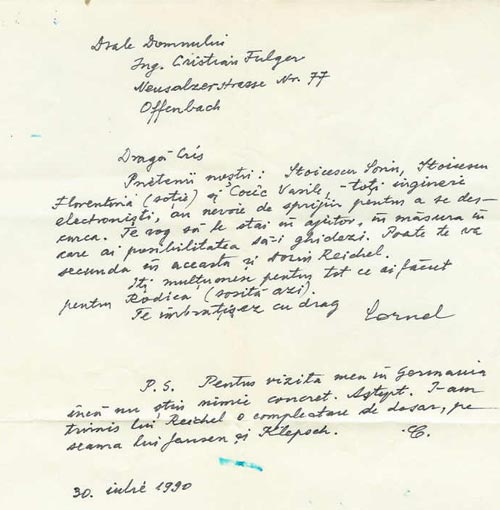 Dsale Domnului
Ing. Cristian Fulger
Neusalzerstrasse Nr. 77
Offenbach
Dragă Cris
Prietenii noștri: Stoicescu Sorin, Stoicescu
Florentina (soție) și Cocîc Vasile, - toți ingineri
electroniști, au nevoie de sprijin pentru a se des-
curca. Te rog să le stai în ajutor, în măsura în
care ai posibilitatea să-i ghidezi. Poate te va
secunda în aceasta și Sorin Reichel.
Îți mulțumesc pentru tot ce ai făcut
pentru Rodica (sosită azi).
Te îmbrățișez cu drag
Cornel
P.S. Pentru vizita mea în Germania
încă nu știu nimic concret. Aștept. I-am
trimis lui Reichel o completare de dosar, pe
seama lui Jansen și Klepsch. C.
30. iulie 1990